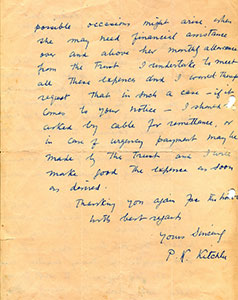 possible occasions might arise when
she may need financial assistance
over and above her monthly allowance
from the Trust I undertake to meet
all these expences and I would though
request that in such a case - if it
comes to your notice - I should be
asked by cable for remittance, or
in case of urgency payment may be
made by the Trust and I will
make good the expense as soon
as desired.
Thanking you again for the
With best regards
Yours Sincerely
P. N.